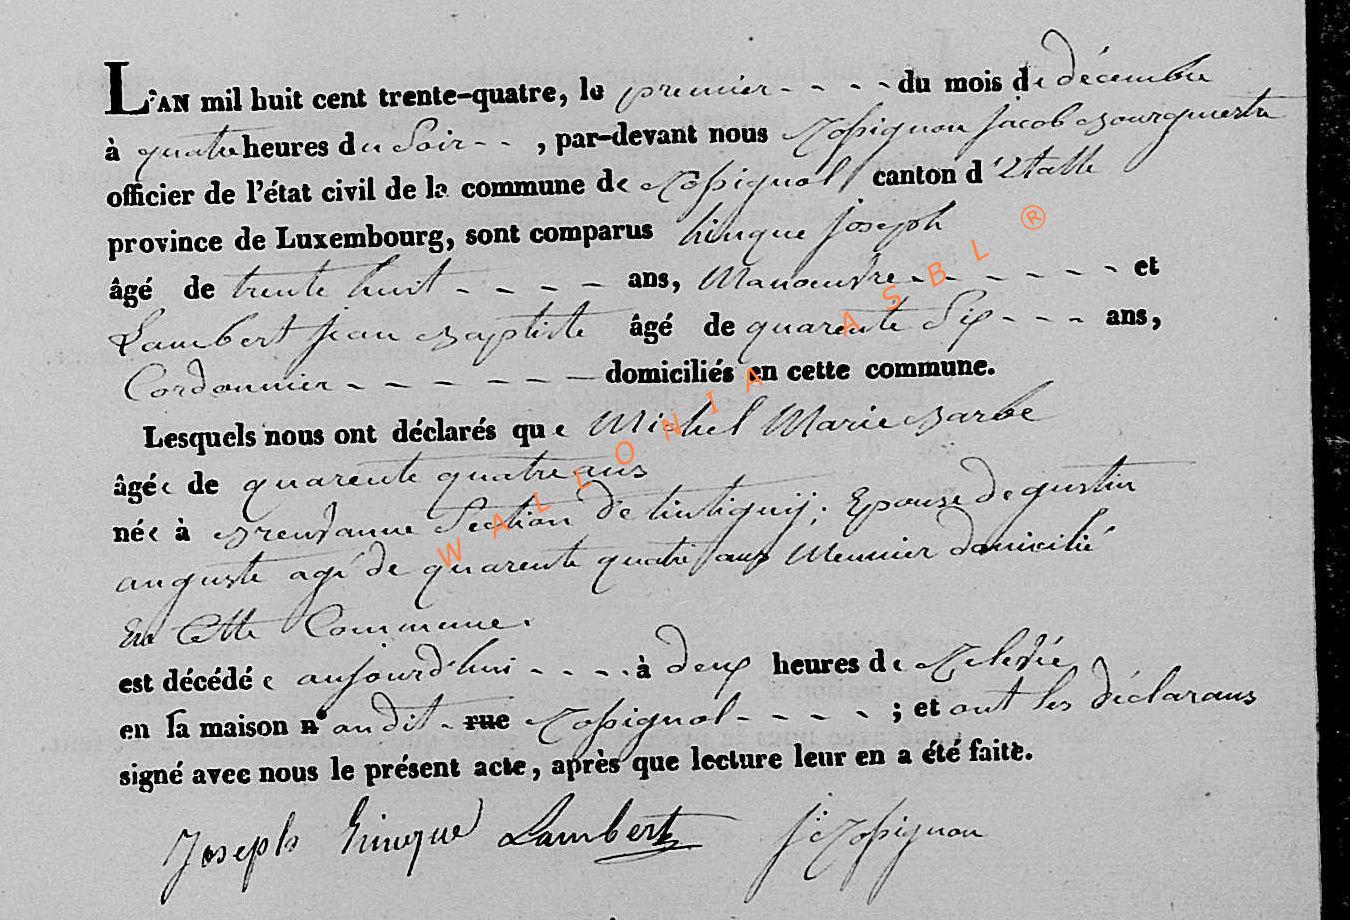 L'AN mil huit cent trente-quatre, le premier - - - - du mois de décembre
à quatre heures du Soir - - , par-devant nous Rossignon Jacob Bourguemetre
officier de l'état civil de la commune de Rossignol canton d'Etalle
province de Luxembourg, sont comparus hinque joseph
âgé de trente huit - - - - ans, Manoeuvre - - - - - - - et
Lambert jean Baptiste âgé de quarente Six - - - ans,
Cordonnier - - - - - - - domiciliés en cette commune.
Lesquels nous ont déclarés que Michel Marie Barbe
âgée de quarente quatre ans
née à Breuvanne Section de tintignij; Epouse de gustin
auguste agé de quarente quatre ans Meunier domicilié
En Cette Commune.
est décédée aujourd'hui - - - - à deux heures de Relevée
en sa maison n° audit - rue Rossignol - - - - ; et ont les déclarans
signé avec nous le présent acte, après que lecture leur en a été faite.
Joseph hinque Lambert J: Rossignon
WALLONIA ASBL ®